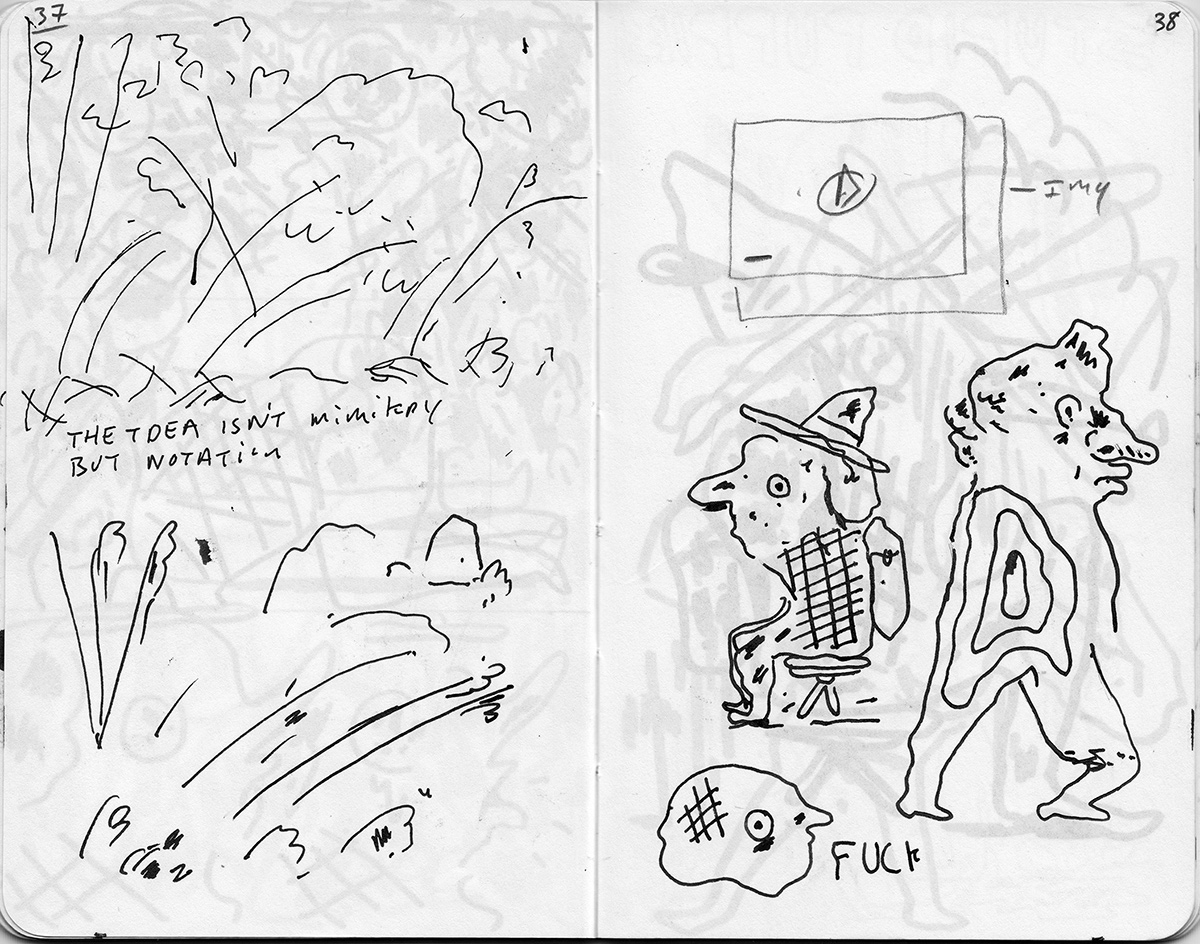 37
THE IDEA ISN'T mimikry
BUT NOTATION
38
FUCK